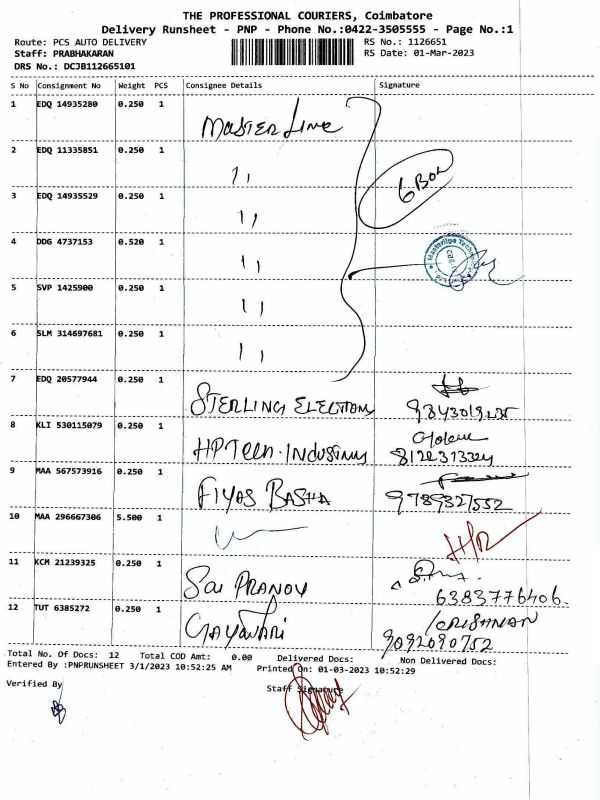 THE PROFESSIONAL COURIERS, Coimbatore
Delivery Runsheet - PNP - Phone No.:0422-3505555 - Page No.:1
Route: PCS AUTO DELIVERY RS No.: 1126651
Staff: PRABHAKARAN RS Date: 01-Mar-2023
DRS No.: DCJB112665101
S No Consignment No Weight PCS Consignee Details Signature
1 EDQ 14935280 0.250 1 Master Line
2 EDQ 11335851 0.250 1 ,,
3 EDQ 14935529 0.250 1 ,, 6 Box
4 DDG 4737153 0.520 1 ,,
5 SVP 1425900 0.250 1 ,,
6 SLM 314697681 0.250 1 ,,
7 EDQ 20577944 0.250 1 STERLING
8 KLI 530115079 0.250 1 HP Tech
9 MAA 567573916 0.250 1 FIYAS BASHA 9789327552
10 MAA 296667306 5.500 1 H/R
11 KCM 21239325 0.250 1 Sai PRANOV 6383776406.
12 TUT 6385272 0.250 1 GAYATHRI KRISHNAN 9092090752
Total No. Of Docs: 12 Total COD Amt: 0.00 Delivered Docs: Non Delivered Docs:
Entered By :PNPRUNSHEET 3/1/2023 10:52:25 AM Printed On: 01-03-2023 10:52:29
Verified By Staff Signature